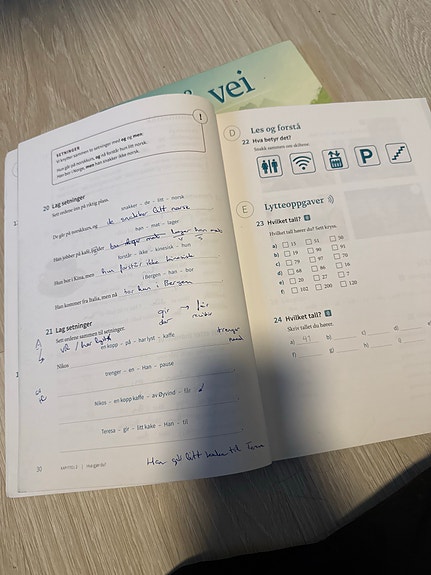 vei
!
SETNINGER
Vi knytter sammen to setninger med og og men:
Hun går på norskkurs, og nå forstår hun litt norsk.
Han bor i Norge, men han snakker ikke norsk.
20 Lag setninger
Sett ordene inn på riktig plass.
snakker - de - litt - norsk
De går på norskkurs, og de snakker litt norsk
han - mat - lager
Han jobber på kafé,
forstår - ikke - kinesisk - hun
Hun bor i Kina, men hun forstår ikke kinesisk
i Bergen - han - bor
Han kommer fra Italia, men nå bor han i Bergen
21 Lag setninger
Sett ordene sammen til setninger.
gir → får
en kopp - på - har lyst - kaffe
Nikos
trenger
trenger - en - Han - pause
Nikos - en kopp kaffe - av Øyvind - får
Teresa - gir - litt kake - Han - til
Han gir litt kake til
30 KAPITTEL 2 | Hva gjør du?
D Les og forstå
22 Hva betyr det?
Snakk sammen om skiltene.
P
E Lytteoppgaver
23 Hvilket tall?
Hvilket tall hører du? Sett kryss.
a) 15 51 50
b) 19 90 91
c) 79 97 70
d) 68 86 16
e) 20 27 7
f) 102 200 120
24 Hvilket tall?
Skriv tallet du hører.
a) b) c) d)
f) g) h) i)